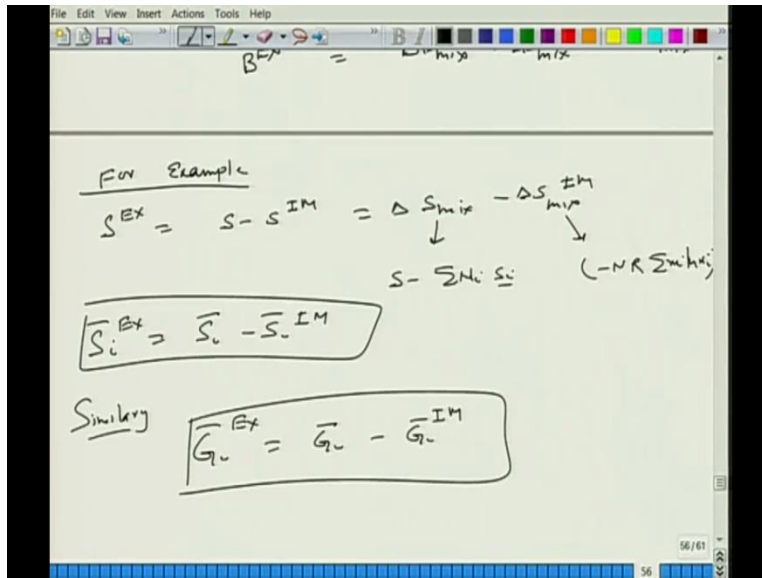 File Edit View Insert Actions Tools Help
B I
B^Ex =
For Example
S^EX = S - S^IM = Δ S_mix - ΔS_mix^IM
↓ ↘
S - ΣN_i S_i (-NR Σx_i ln x_i)
S̄_i^Ex = S̄_i - S̄_i^IM
Similary
Ḡ_i^Ex = Ḡ_i - Ḡ_i^IM
56/61
56